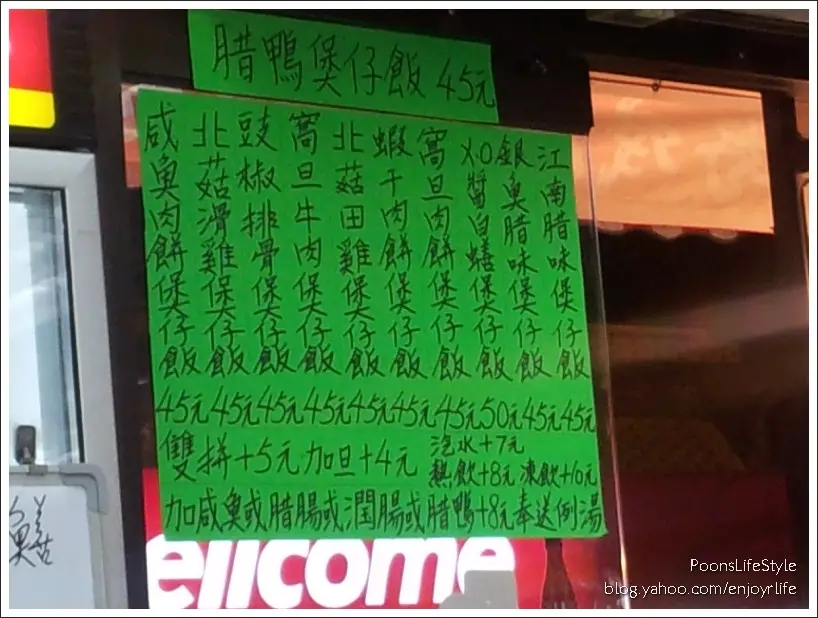 腊鴨煲仔飯 45元
咸魚肉餅煲仔飯
北菇滑雞煲仔飯
豉椒排骨煲仔飯
窩旦牛肉煲仔飯
北菇田雞煲仔飯
蝦干肉餅煲仔飯
窩旦肉餅煲仔飯
X.O醬白鱔煲仔飯
銀魚腊味煲仔飯
江南腊味煲仔飯
45元 45元 45元 45元 45元 45元 45元 50元 45元 45元
雙拼+5元 加旦+4元
汽水+7元
熱飲+8元 凍飲+10元
加咸魚或腊腸或潤腸或腊鴨+8元奉送例湯
ellcome
PoonsLifeStyle
blog.yahoo.com/enjoyrlife